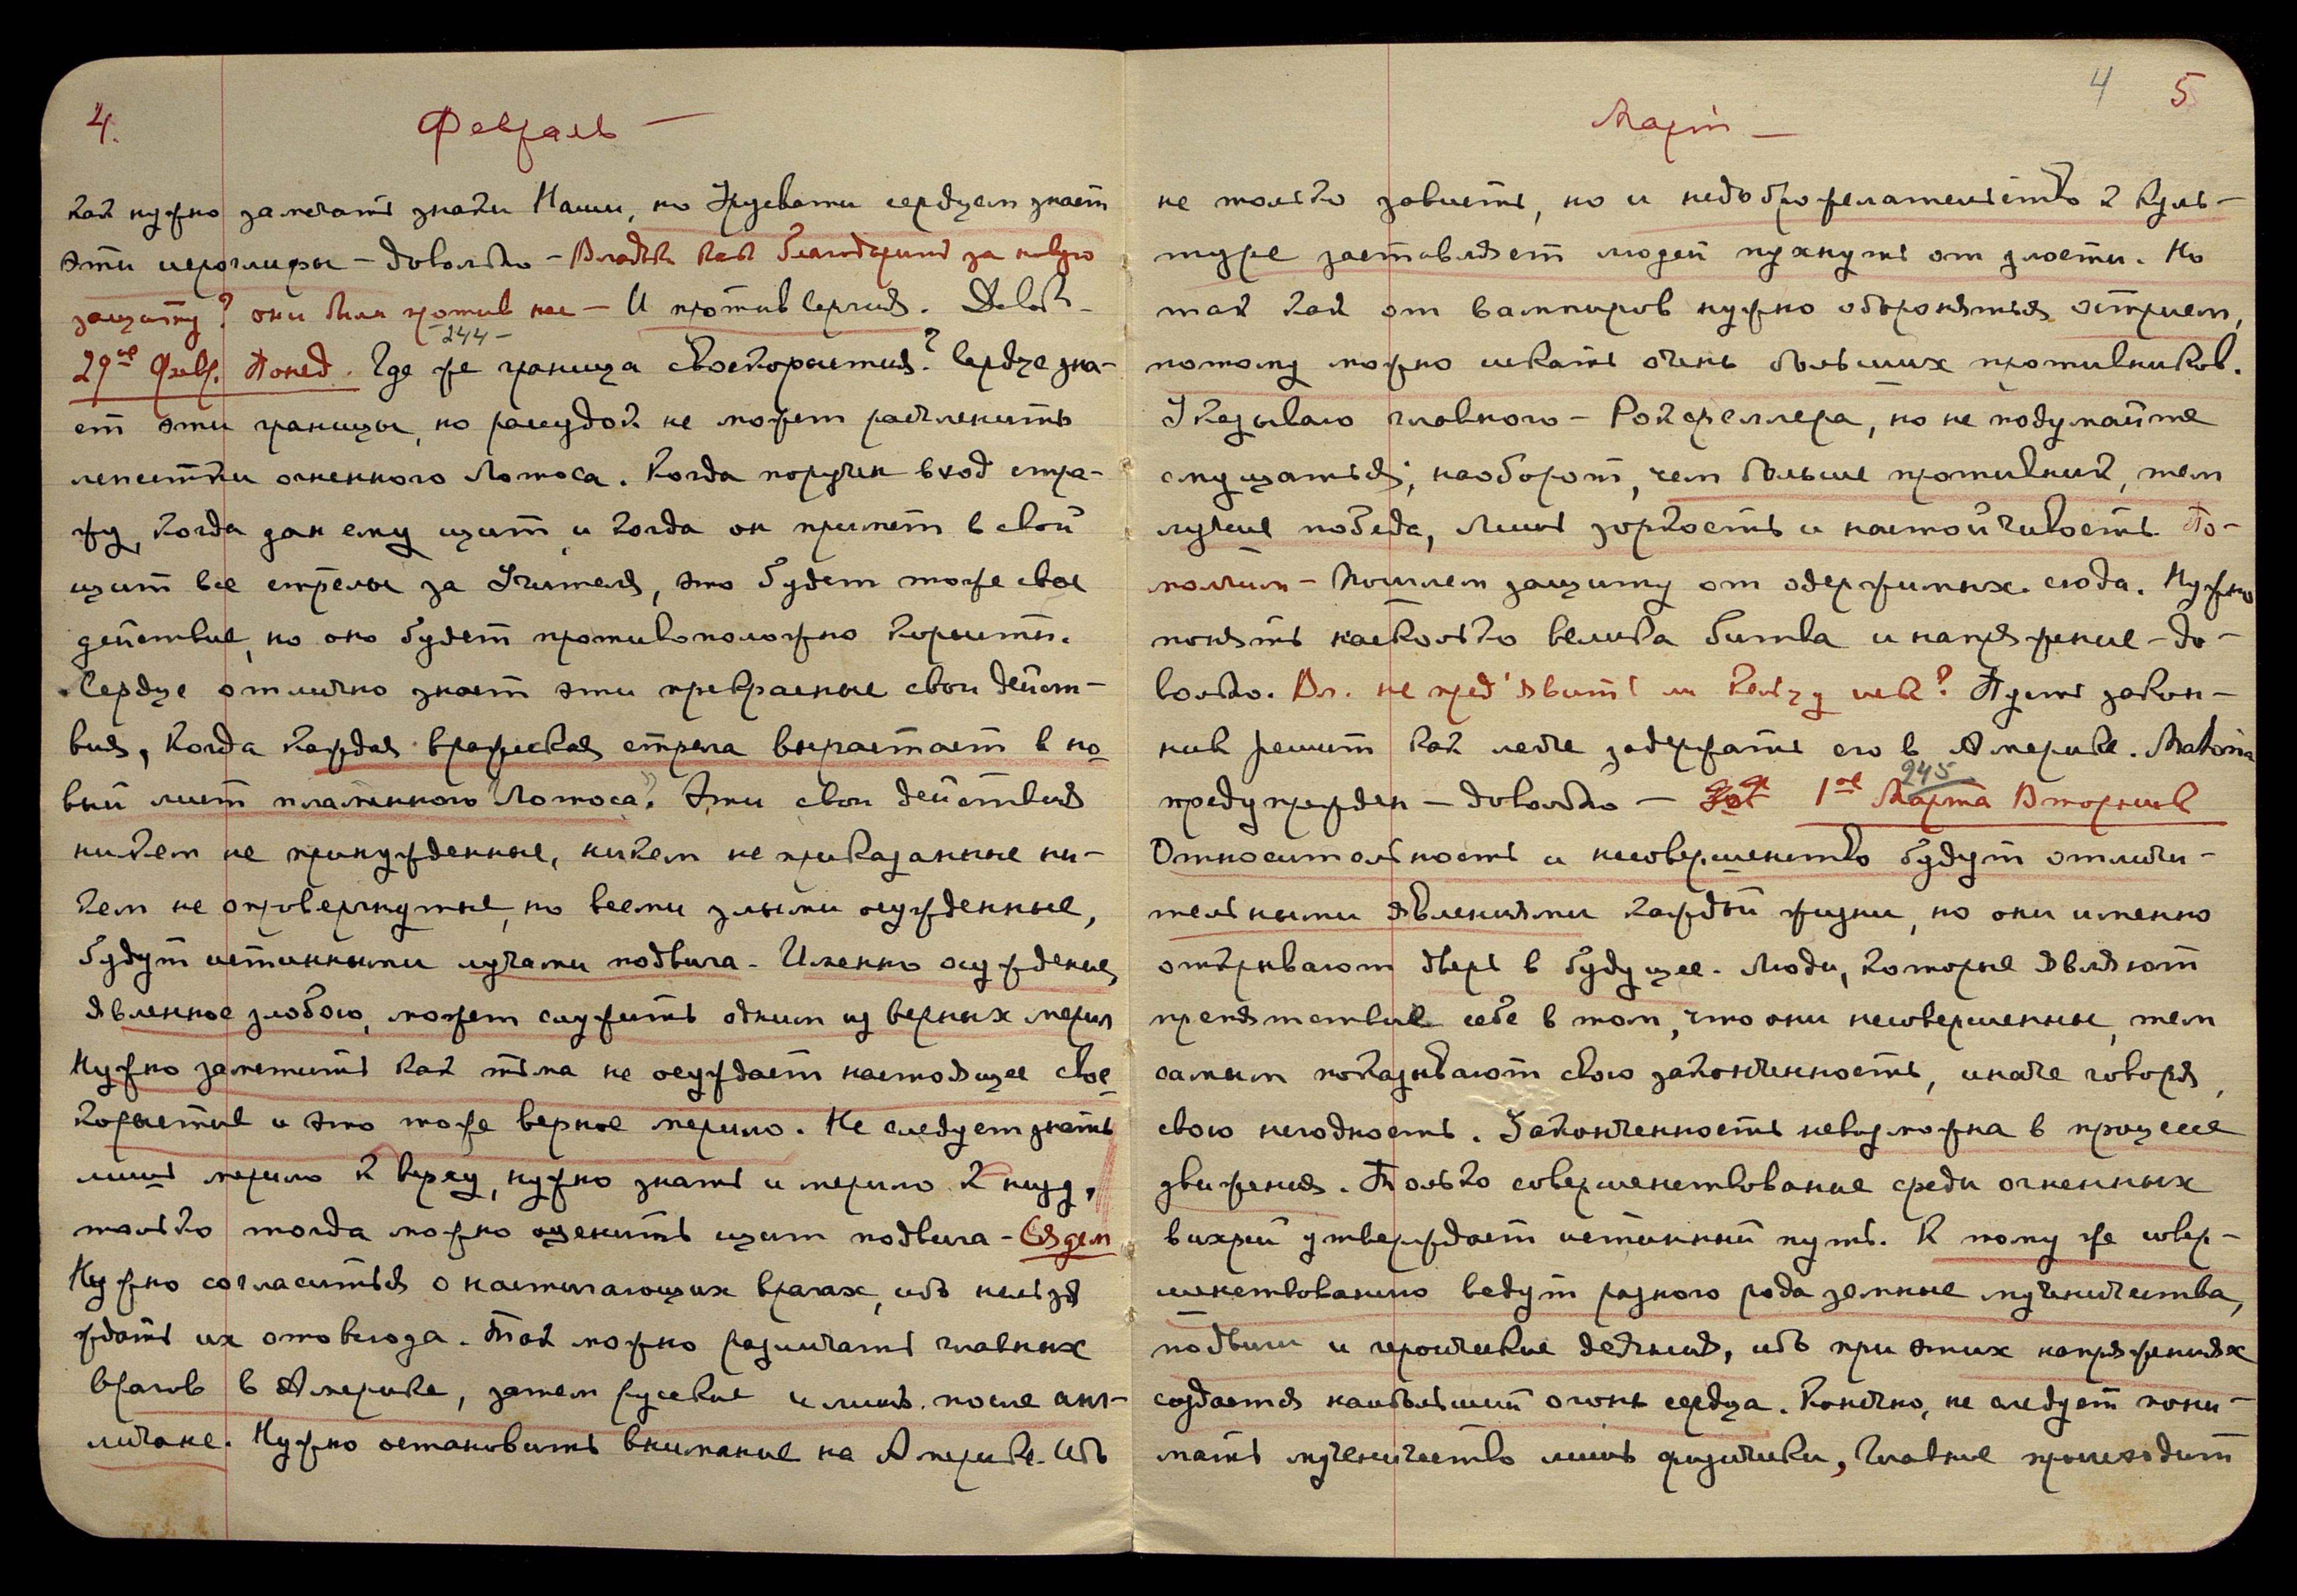 4.
Февраль —
как нужно замечать знаки Наши, но Урусвати сердцем знает
эти иероглифы – довольно – Владыка как благодарить за новую
защиту? они были против нас – И против Сергия. Довол.
– 244 –
29ое Февр. Понед. Где же граница своекорыстия? Сердце зна-
ет эти границы, но рассудок не может расчленить
лепестки огненного Лотоса. Когда поручен вход стра-
жу, когда дан ему щит и когда он примет в свой
щит все стрелы за Учителя, это будет тоже свое
действие, но оно будет противоположно корысти.
Сердце отлично знает эти прекрасные свои дейст-
вия, когда каждая вражеская стрела вырастает в но
вый лист пламенного "Лотоса". Эти свои действия
никем не принужденные, никем не приказанные ни-
кем не опровергнутые, но всеми злыми осужденные,
будут истинными лучами подвига. Именно осуждение,
явленное злобою, может служить одним из верных мерил
Нужно заметить как тьма не осуждает настоящее свое
корыстие и это тоже верное мерило. Не следует знать
лишь мерило к верху, нужно знать и мерило к низу,
только тогда можно оценить щит подвига –
Нужно согласиться о настигающих врагах, ибо нельзя
ждать их отовсюда. Так можно различать главных
врагов в Америке, затем русские и лишь после анг-
личане. Нужно остановить внимание на Америке. Ибо
4 5
Март —
не только зависть, но и недоброжелательство к куль-
туре заставляет людей пухнуть от злости. Но
так как от вампиров нужно обороняться острием,
потому можно искать очень больших противников.
Указываю главного – Рокфеллера, но не подумайте
смущаться; наоборот, чем больше противник, тем
лучше победа, лишь зоркость и настойчивость. По-
молчим – Пошлем защиту от одержимых сюда. Нужно
понять насколько велика битва и напряжение – до-
вольно. Вл. не пред'явить ли иск? Пусть закон-
ник решит как легче задержать его в Америке.
предупрежден – довольно – 245 1ое Марта Вторник
Относительность и несовершенство будут отличи-
тельными явлениями каждой жизни, но они именно
открывают дверь в будущее. Люди, которые являют
препятствие себе в том, что они несовершенны, тем
самым показывают свою законченность, иначе говоря,
свою негодность. Законченность невозможна в процессе
движения. Только совершенствование среди огненных
вихрей утверждает истинный путь. К тому же совер-
шенствованию ведут разного рода земные мученичества,
подвиги и героические деяния, ибо при этих напряжениях
создается наибольший огонь сердца. Конечно, не следует пони-
мать мученичество лишь физически, главное происходит